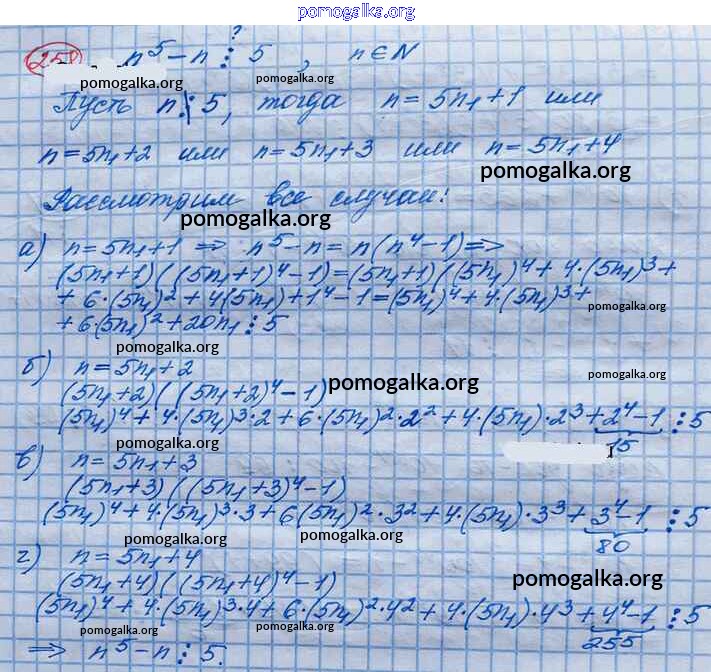 pomogalka.org
?
258 n⁵ − n ⋮ 5, n ∈ N
pomogalka.org pomogalka.org
Пусть n ⋮̸ 5, тогда n = 5n₁ + 1 или
n = 5n₁ + 2 или n = 5n₁ + 3 или n = 5n₁ + 4
pomogalka.org
Рассмотрим все случаи:
pomogalka.org
а) n = 5n₁ + 1 ⇒ n⁵ − n = n(n⁴ − 1) ⇒
(5n₁+1)((5n₁+1)⁴−1) = (5n₁+1)((5n₁)⁴ + 4·(5n₁)³ +
+ 6·(5n₁)² + 4(5n₁) + 1⁴ − 1 = (5n₁)⁴ + 4·(5n₁)³ +
pomogalka.org
+ 6·(5n₁)² + 20n₁ ⋮ 5
pomogalka.org
б) n = 5n₁ + 2
pomogalka.org pomogalka.org
(5n₁+2)((5n₁+2)⁴−1)
(5n₁)⁴ + 4·(5n₁)³·2 + 6·(5n₁)²·2² + 4·(5n₁)·2³ + 2⁴ − 1 ⋮ 5
15
pomogalka.org
в) n = 5n₁ + 3
(5n₁+3)((5n₁+3)⁴−1)
(5n₁)⁴ + 4·(5n₁)³·3 + 6(5n₁)²·3² + 4·(5n₁)·3³ + 3⁴ − 1 ⋮ 5
80
pomogalka.org pomogalka.org
г) n = 5n₁ + 4
(5n₁+4)((5n₁+4)⁴−1)
pomogalka.org
(5n₁)⁴ + 4·(5n₁)³·4 + 6·(5n₁)²·4² + 4·(5n₁)·4³ + 4⁴ − 1 ⋮ 5
255
pomogalka.org pomogalka.org
⇒ n⁵ − n ⋮ 5.